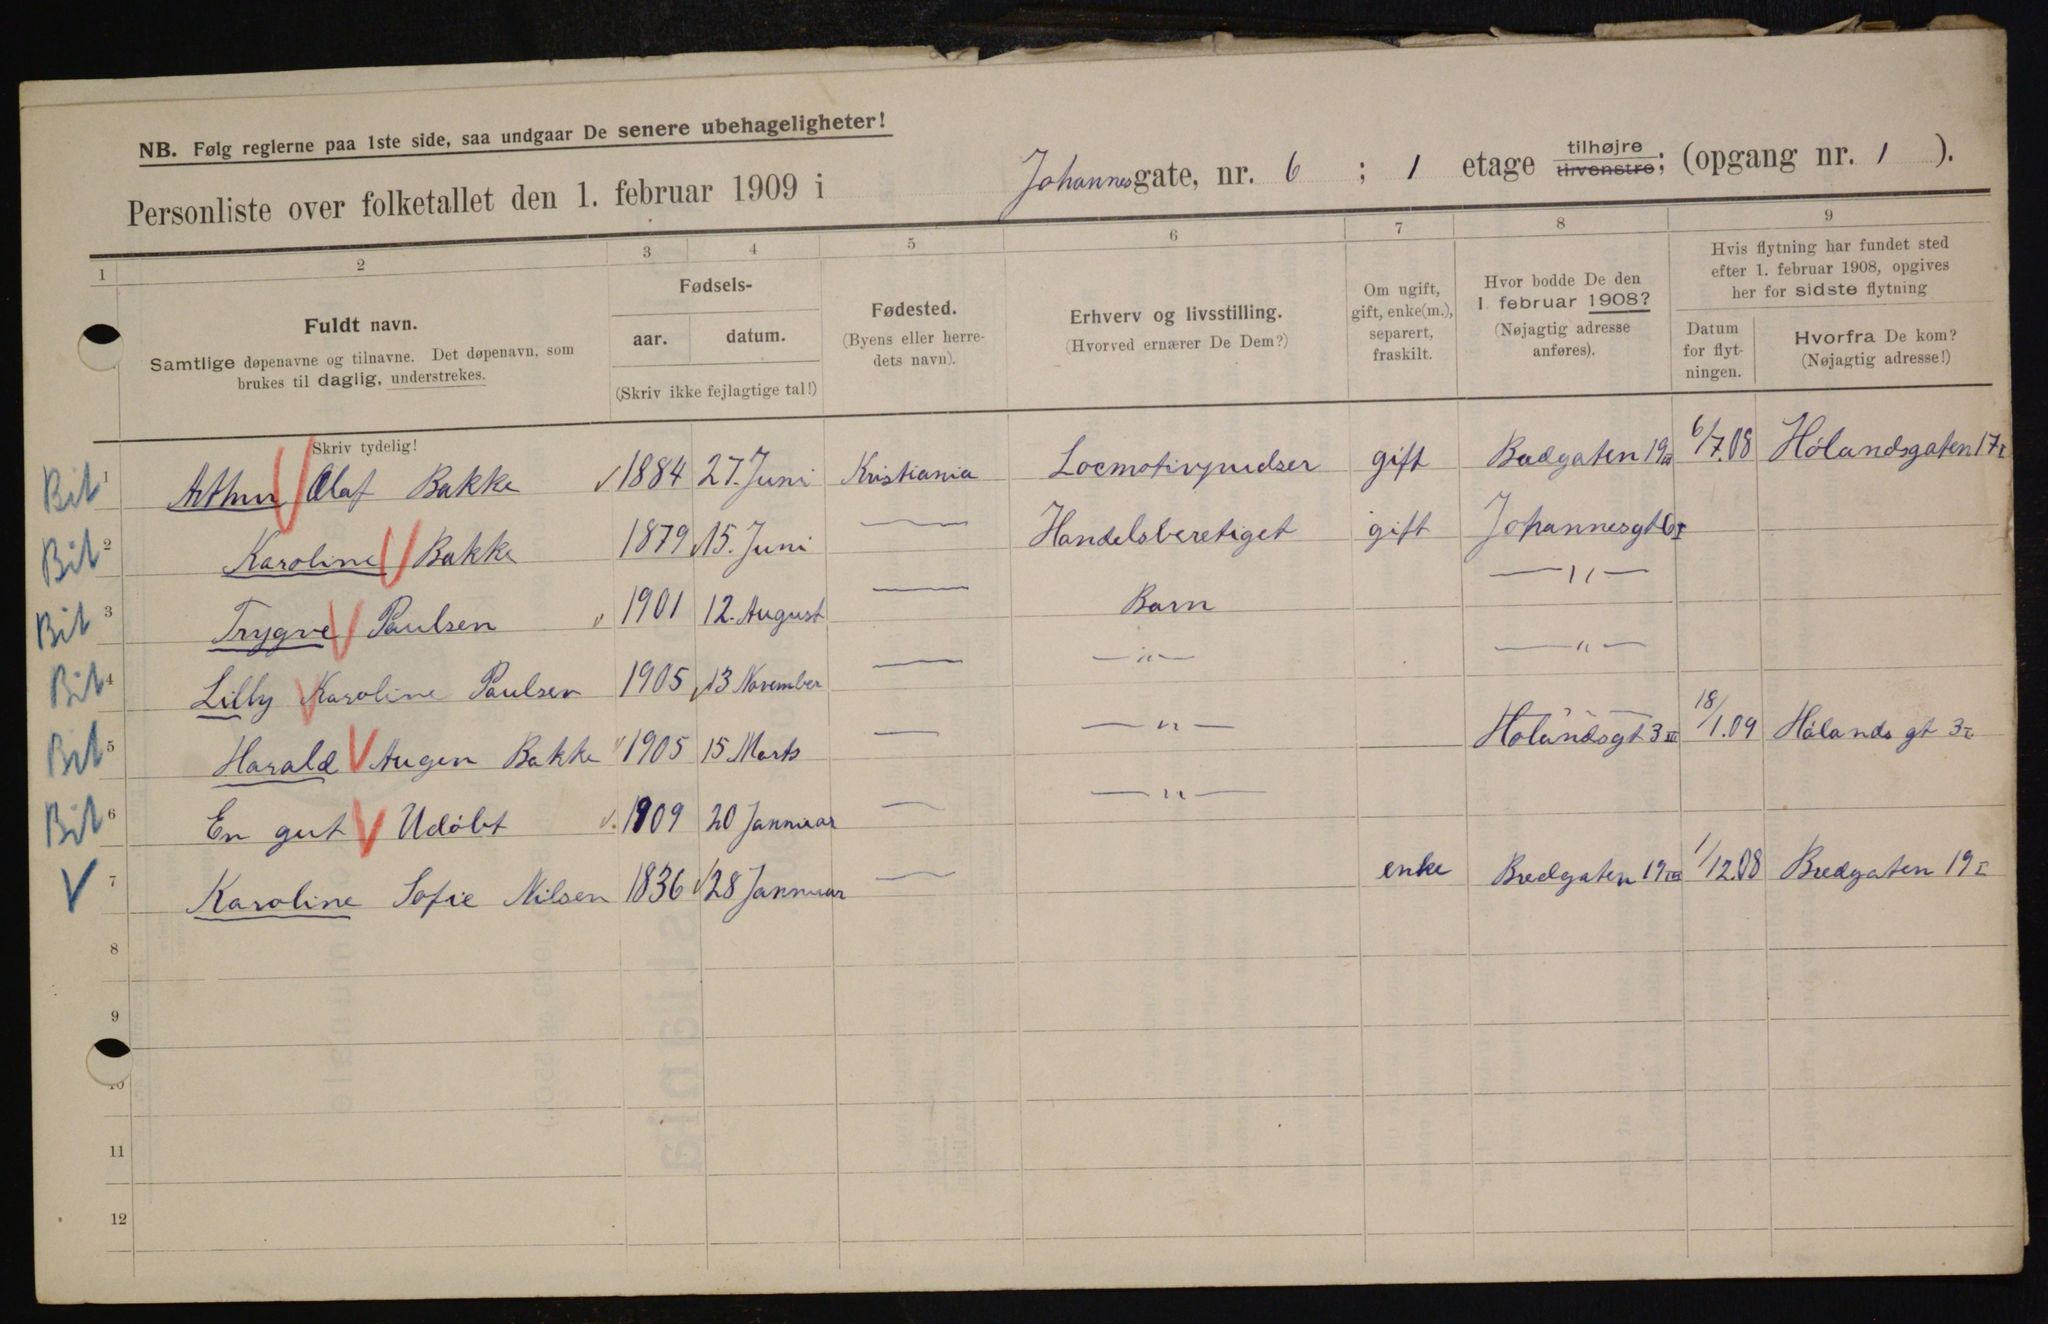 NB. Følg reglerne paa 1ste side, saa undgaar De senere ubehageligheter!
Personliste over folketallet den 1. februar 1909 i Johannesgate, nr. 6 ; 1 etage tilhøjre tilvenstre; (opgang nr. 1 ).
1 2 3 4 5 6 7 8 9
Fuldt navn.
Samtlige døpenavne og tilnavne. Det døpenavn, som
brukes til daglig, understrekes.
Skriv tydelig!
Fødsels-
aar. datum.
(Skriv ikke fejlagtige tal!)
Fødested.
(Byens eller herre-
dets navn).
Erhverv og livsstilling.
(Hvorved ernærer De Dem?)
Om ugift,
gift, enke(m.),
separert,
fraskilt.
Hvor bodde De den
1. februar 1908?
(Nøjagtig adresse
anføres).
Hvis flytning har fundet sted
efter 1. februar 1908, opgives
her for sidste flytning
Datum
for flyt-
ningen.
Hvorfra De kom?
(Nøjagtig adresse!)
Bit 1 Arthur Olaf Bakke 1884 27. Juni Kristiania Locmotivpudser gift Bredgaten 19 III 6/7.08 Hólandsgaten 17 I
Bit 2 Karoline Bakke 1879 15. Juni — Handelsberetiget gift Johannesgt 6 I
Bit 3 Trygve Paulsen 1901 12. August — Barn — " —
Bit 4 Lilly Karoline Paulsen 1905 13 November — — " — — " —
Bit 5 Harald Augen Bakke 1905 15 Marts — — " — Holandsgt 3 III 18/1.09 Hólands gt 3 I
Bit 6 En gut Udóbt 1909 20 Januar — — " —
V 7 Karoline Sofie Nilsen 1836 28 Januar — enke Bredgaten 19 III 1/12.08 Bredgaten 19 I
8
9
10
11
12